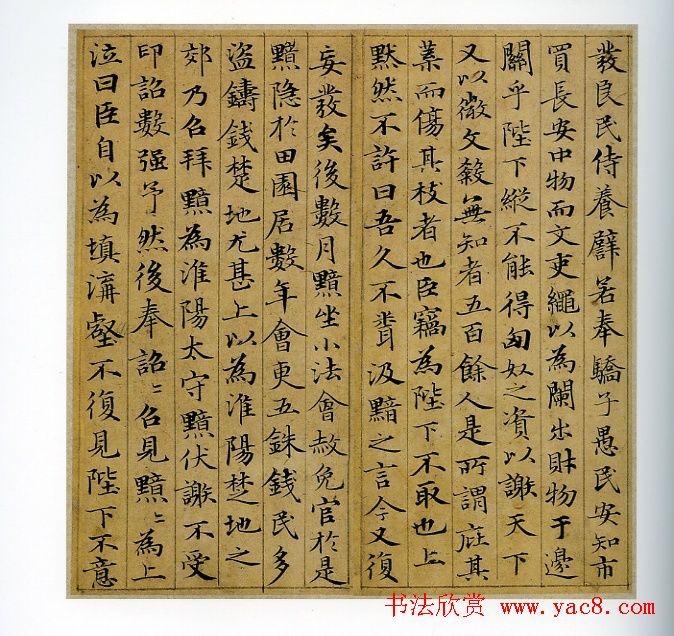 發良民侍養譬若奉驕子愚民安知市
買長安中物而文吏繩以為闌出財物于邊
關乎陛下縱不能得匈奴之資以謝天下
又以微文殺無知者五百餘人是所謂庇其
葉而傷其枝者也臣竊為陛下不取也上
默然不許曰吾久不聞汲黯之言今又復
妄發矣後數月黯坐小法會赦免官於是
黯隱於田園居數年會更五銖錢民多
盜鑄錢楚地尤甚上以為淮陽楚地之
郊乃召拜黯為淮陽太守黯伏謝不受
印詔數强予然後奉詔〻召見黯〻為上
泣曰臣自以為填溝壑不復見陛下不意
书法欣赏 www.yac8.com